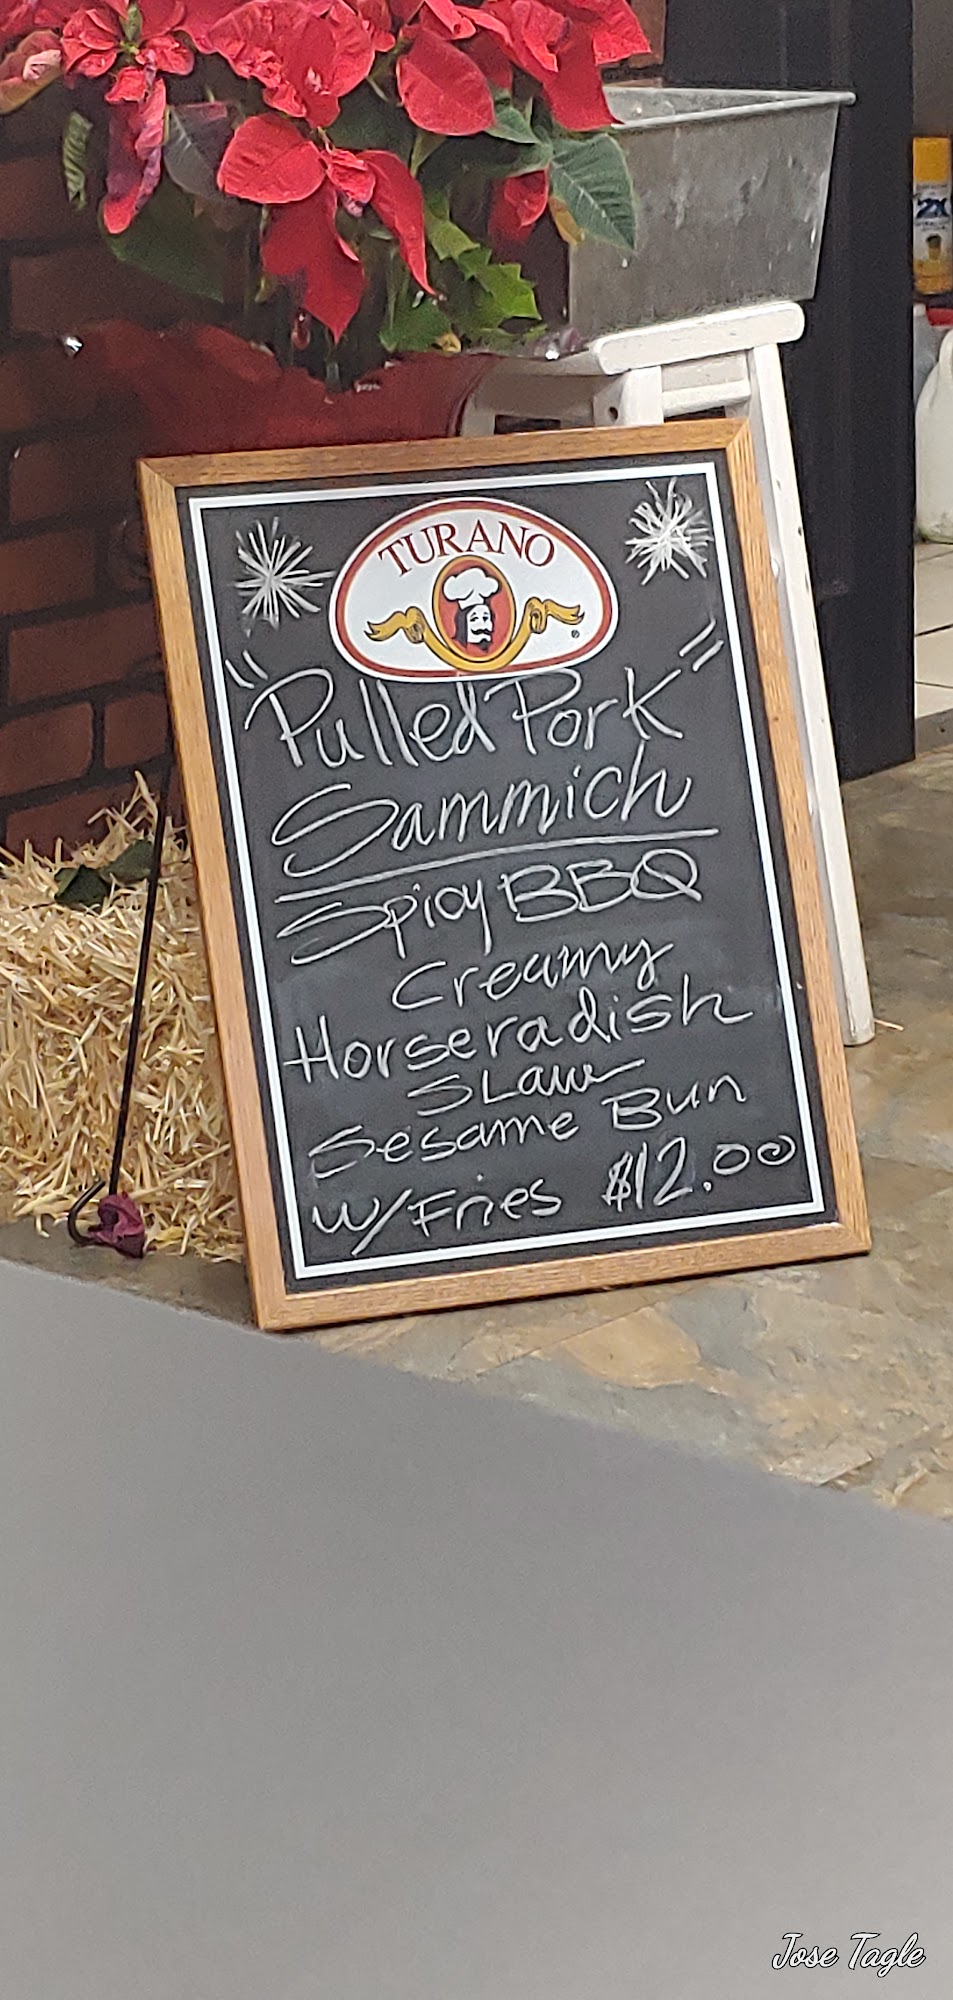 2X
TURANO
®
"Pulled Pork"
Sammich
Spicy BBQ
Creamy
Horseradish
SLaw
Sesame Bun
w/Fries $12.00
Jose Tagle